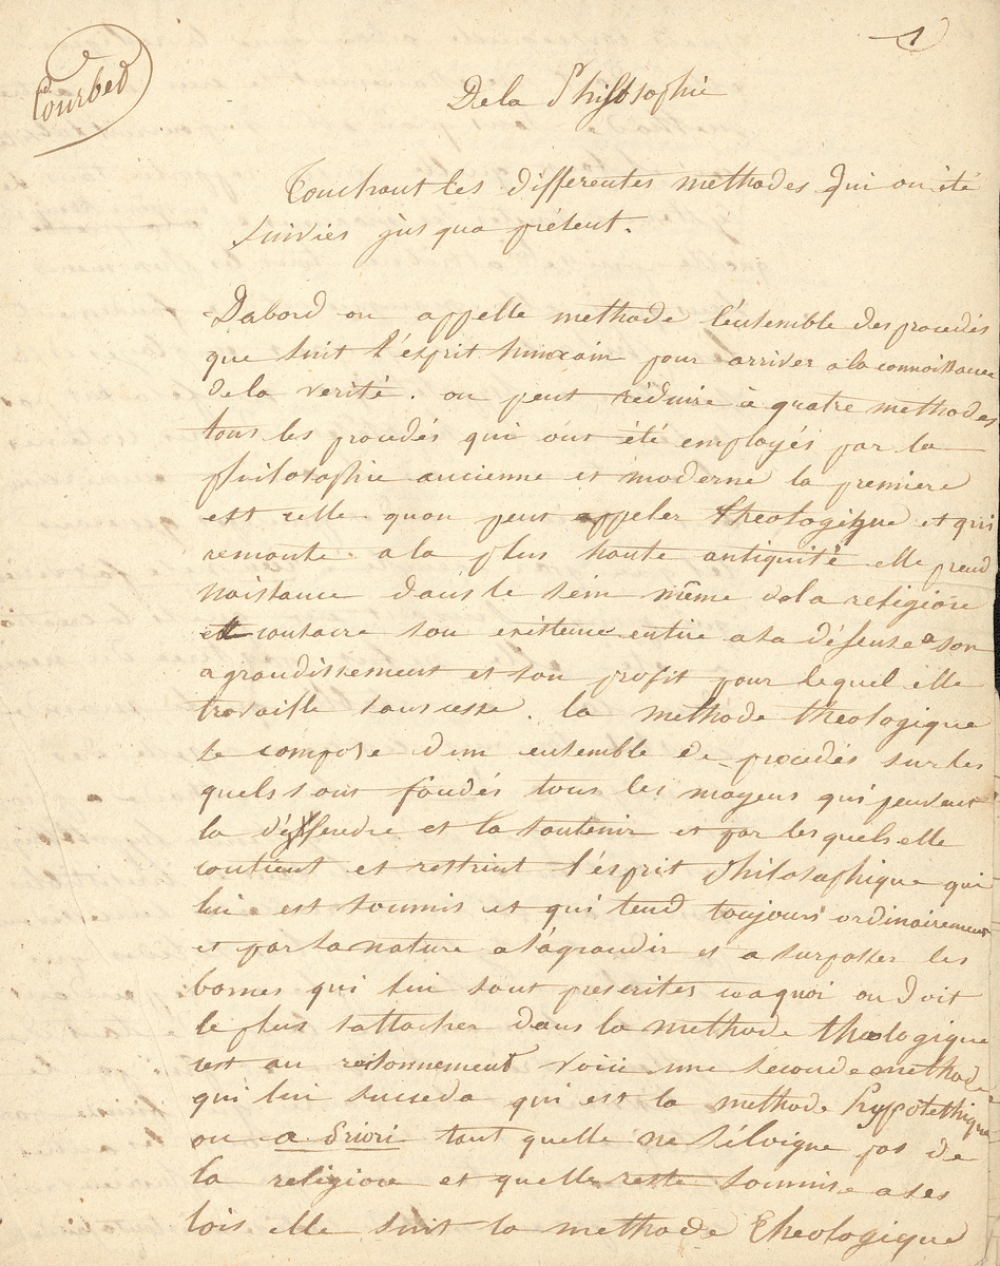 Courbet
1
De la Philosophie
Touchant les differentes methodes qui on été
suivies jus qua présent.
Dabord on appelle methode l'ensemble des procedés
que suit l'esprit humain pour arriver a la connoissance
de la verité. on peut réduire a quatre methodes
tous les procedés qui ons été employés par la
philosophie ancienne et moderne la premiere
est celle quon peut appeler theologique et qui
remonte a la plus haute antiquité elle prend
naissance dans le sein même de la religion
et consacre son existence entire a sa défense a son
agrandissement et son profit pour lequel elle
travaille sans cesse. la methode theologique
se compose dun ensemble de procedés sur les
quels sont fondés tous les moyens qui peuvent
la déffendre et la soutenir et par les quels elle
contient et restrint l'esprit philosophique qui
lui est soumis et qui tend toujours ordinairement
et par sa nature a s'agrandir et a surpasser les
bornes qui lui sont prescrites ca quoi on doit
le plus sattacher dans la methode theologique
cest au raisonnement voici une seconde methode
qui lui succeda qui est la methode hypotethique
ou a Priori tout quelle ne séloigne pas de
la religion et quelle reste soumise a ses
lois elle suit la methode theologique